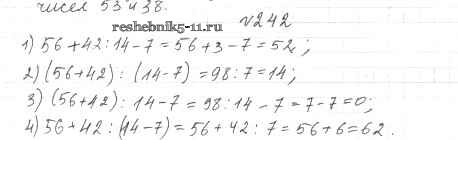 чисел 53 и 38.
reshebnik5-11.ru
№242
1) 56+42:14-7=56+3-7=52;
2) (56+42):(14-7)=98:7=14;
3) (56+42):14-7=98:14-7=7-7=0;
4) 56+42:(14-7)=56+42:7=56+6=62.